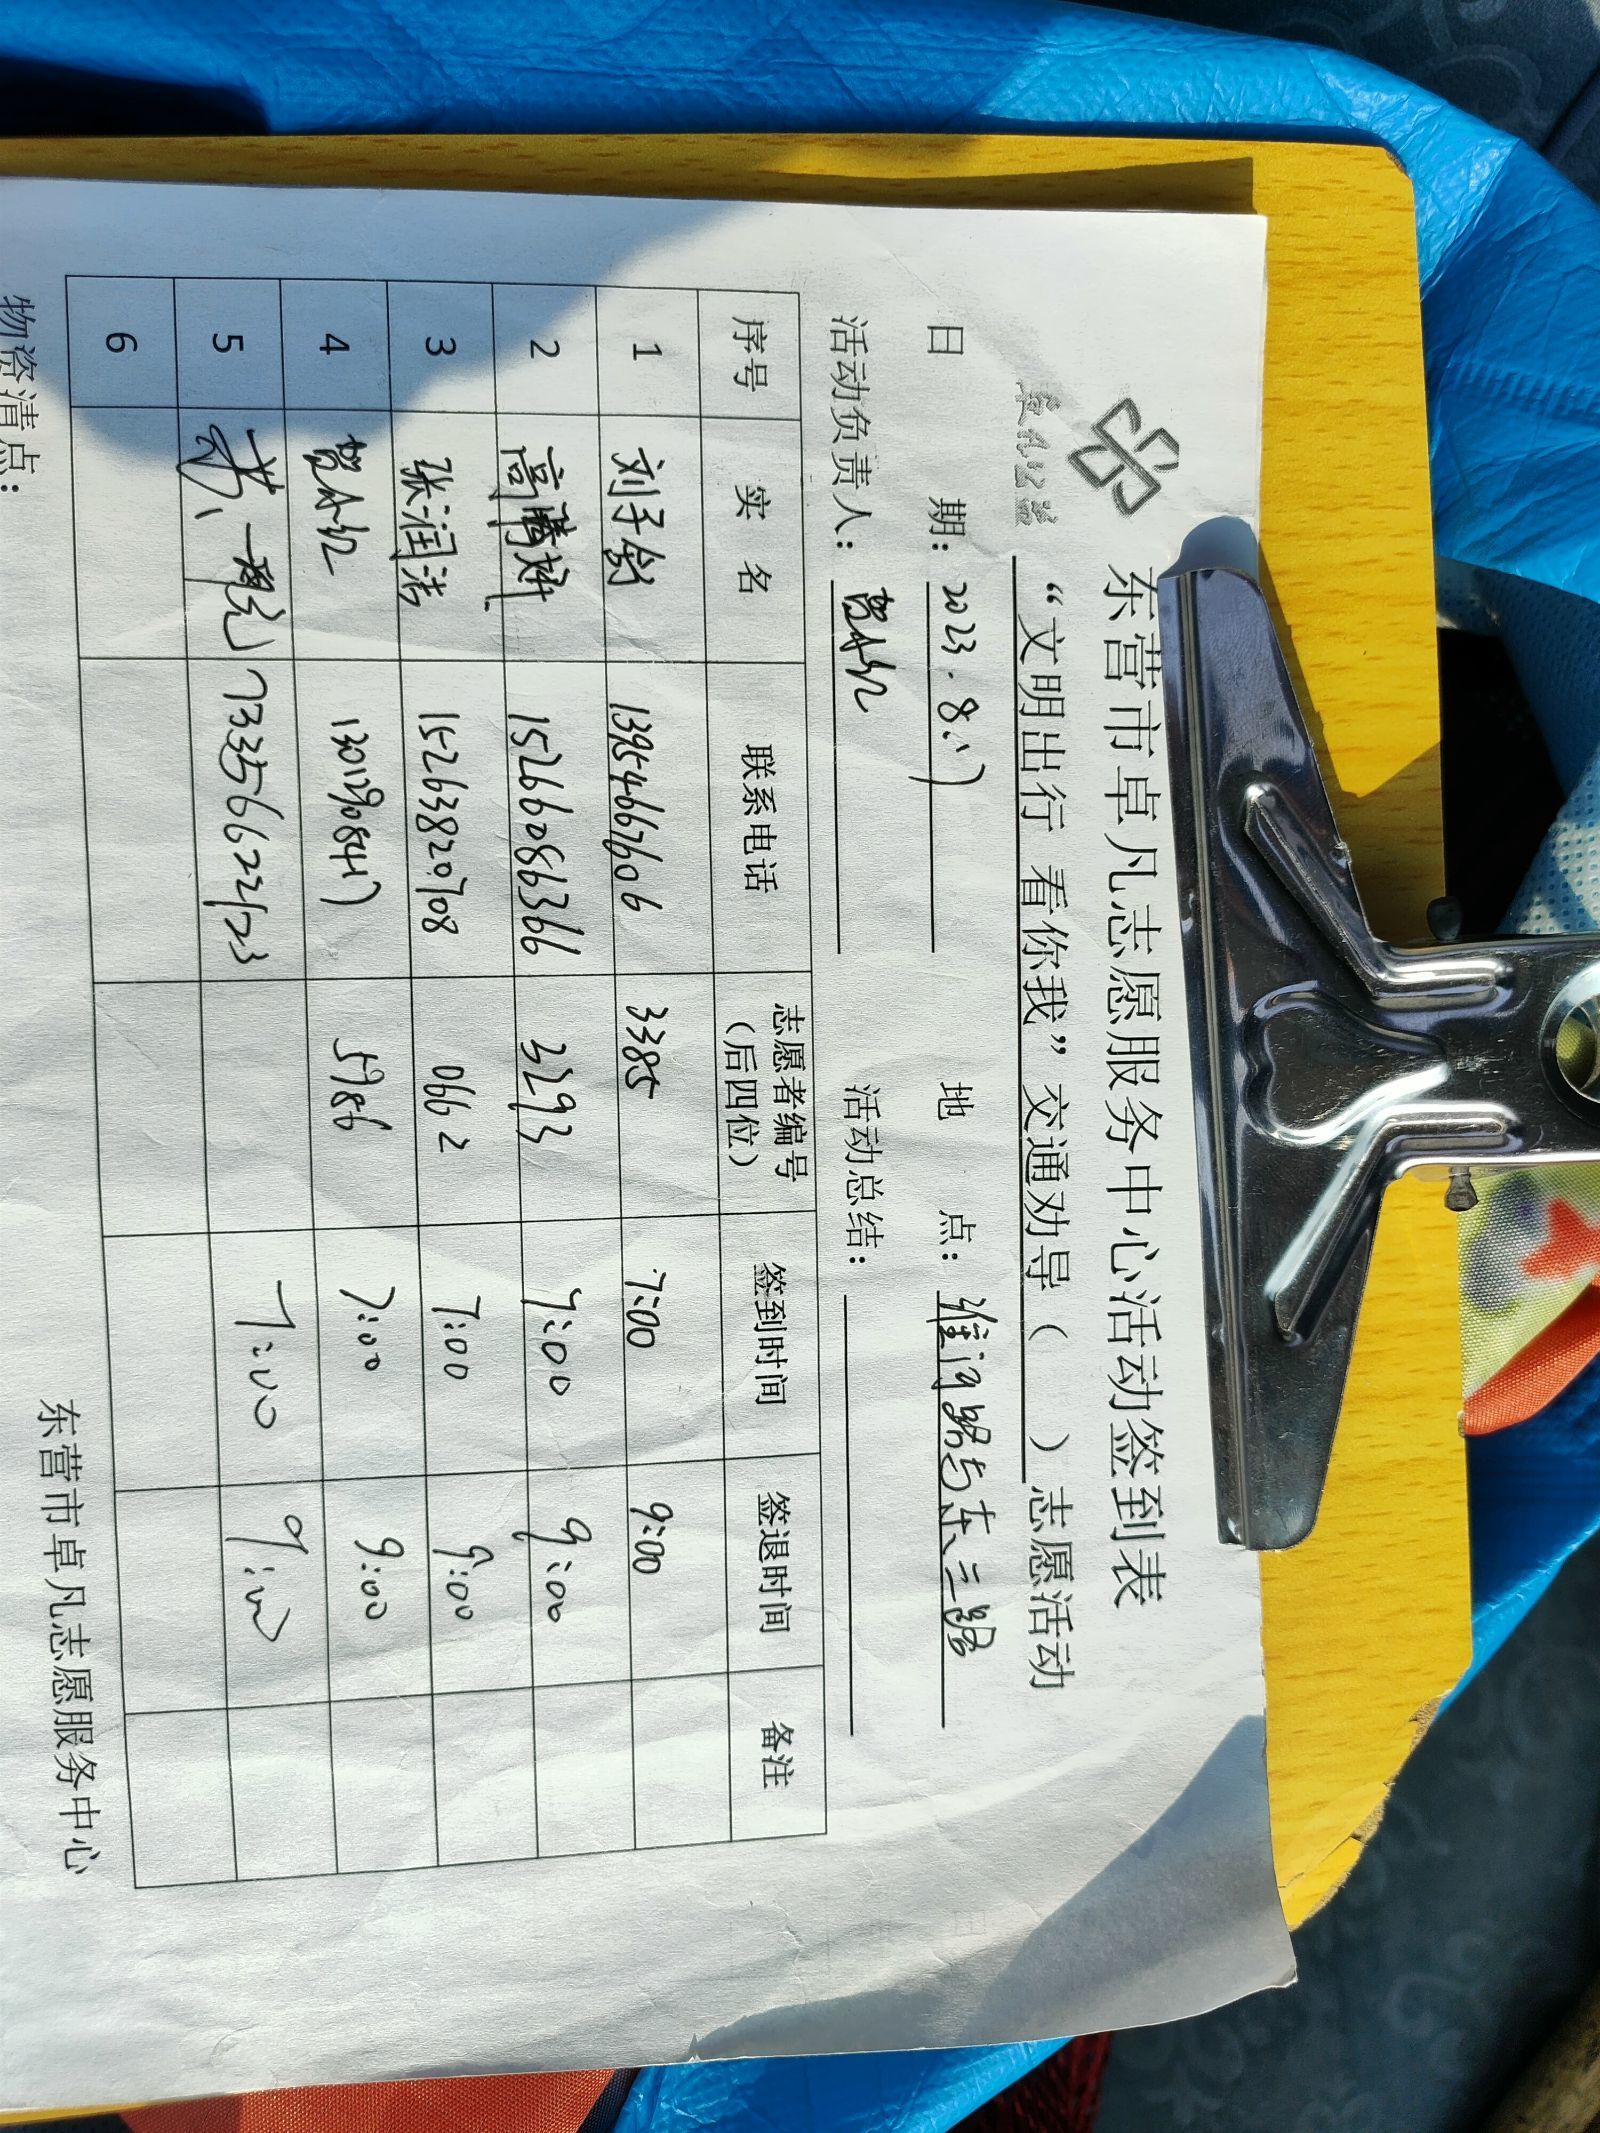 卓凡公益
东营市卓凡志愿服务中心活动签到表
“文明出行 看你我”交通劝导（ ）志愿活动
日 期：2023.8.17 地 点：淮河路与东二路
活动负责人： 活动总结：
序号 实 名 联系电话 志愿者编号（后四位） 签到时间 签退时间 备注
1 刘子爺 13954667606 3385 7:00 9:00
2 高腾斌 15266086366 3293 7:00 9:00
3 张润洁 15263820708 0662 7:00 9:00
4 13012908847 5986 7:00 9:00
5 7:00 9:00
6
物资清点：
东营市卓凡志愿服务中心